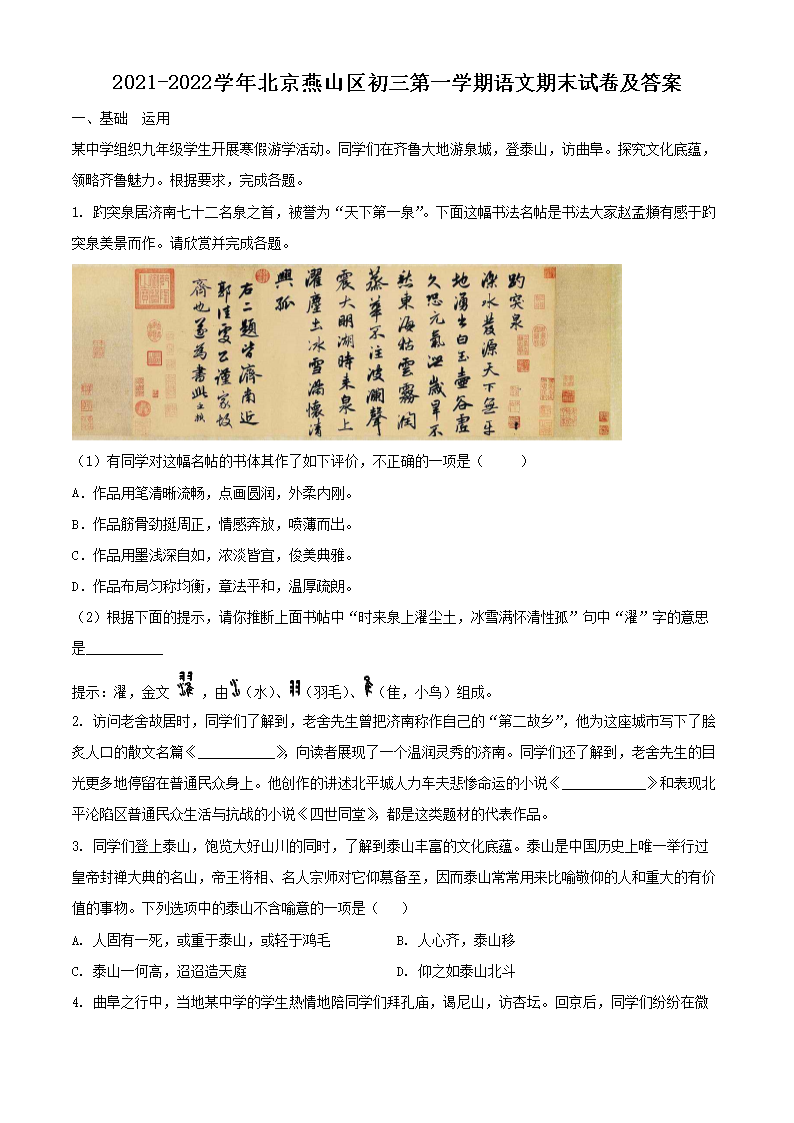 2021-2022学年北京燕山区初三第一学期语文期末试卷及答案
一、基础 运用
某中学组织九年级学生开展寒假游学活动。同学们在齐鲁大地游泉城，登泰山，访曲阜。探究文化底蕴，
领略齐鲁魅力。根据要求，完成各题。
1. 趵突泉居济南七十二名泉之首，被誉为“天下第一泉”。下面这幅书法名帖是书法大家赵孟頫有感于趵
突泉美景而作。请欣赏并完成各题。
趵突泉
濼水發源天下無平
地湧出白玉壺谷虛
久恐元氣泄歲旱不
愁東海枯雲霧潤
蒸華不注波瀾聲
震大明湖時來泉上
濯塵土冰雪滿懷清
興孤
右二題皆濟南近
郭佳處公謹家故
齊也遂為書此
（1）有同学对这幅名帖的书体其作了如下评价，不正确的一项是（ ）
A．作品用笔清晰流畅，点画圆润，外柔内刚。
B．作品筋骨劲挺周正，情感奔放，喷薄而出。
C．作品用墨浅深自如，浓淡皆宜，俊美典雅。
D．作品布局匀称均衡，章法平和，温厚疏朗。
（2）根据下面的提示，请你推断上面书帖中“时来泉上濯尘土，冰雪满怀清性孤”句中“濯”字的意思
是___________
提示：濯，金文 ，由 （水）、 （羽毛）、 （隹，小鸟）组成。
2. 访问老舍故居时，同学们了解到，老舍先生曾把济南称作自己的“第二故乡”，他为这座城市写下了脍
炙人口的散文名篇《___________》，向读者展现了一个温润灵秀的济南。同学们还了解到，老舍先生的目
光更多地停留在普通民众身上。他创作的讲述北平城人力车夫悲惨命运的小说《____________》和表现北
平沦陷区普通民众生活与抗战的小说《四世同堂》，都是这类题材的代表作品。
3. 同学们登上泰山，饱览大好山川的同时，了解到泰山丰富的文化底蕴。泰山是中国历史上唯一举行过
皇帝封禅大典的名山，帝王将相、名人宗师对它仰慕备至，因而泰山常常用来比喻敬仰的人和重大的有价
值的事物。下列选项中的泰山不含喻意的一项是（ ）
A. 人固有一死，或重于泰山，或轻于鸿毛 B. 人心齐，泰山移
C. 泰山一何高，迢迢造天庭 D. 仰之如泰山北斗
4. 曲阜之行中，当地某中学的学生热情地陪同学们拜孔庙，谒尼山，访杏坛。回京后，同学们纷纷在微